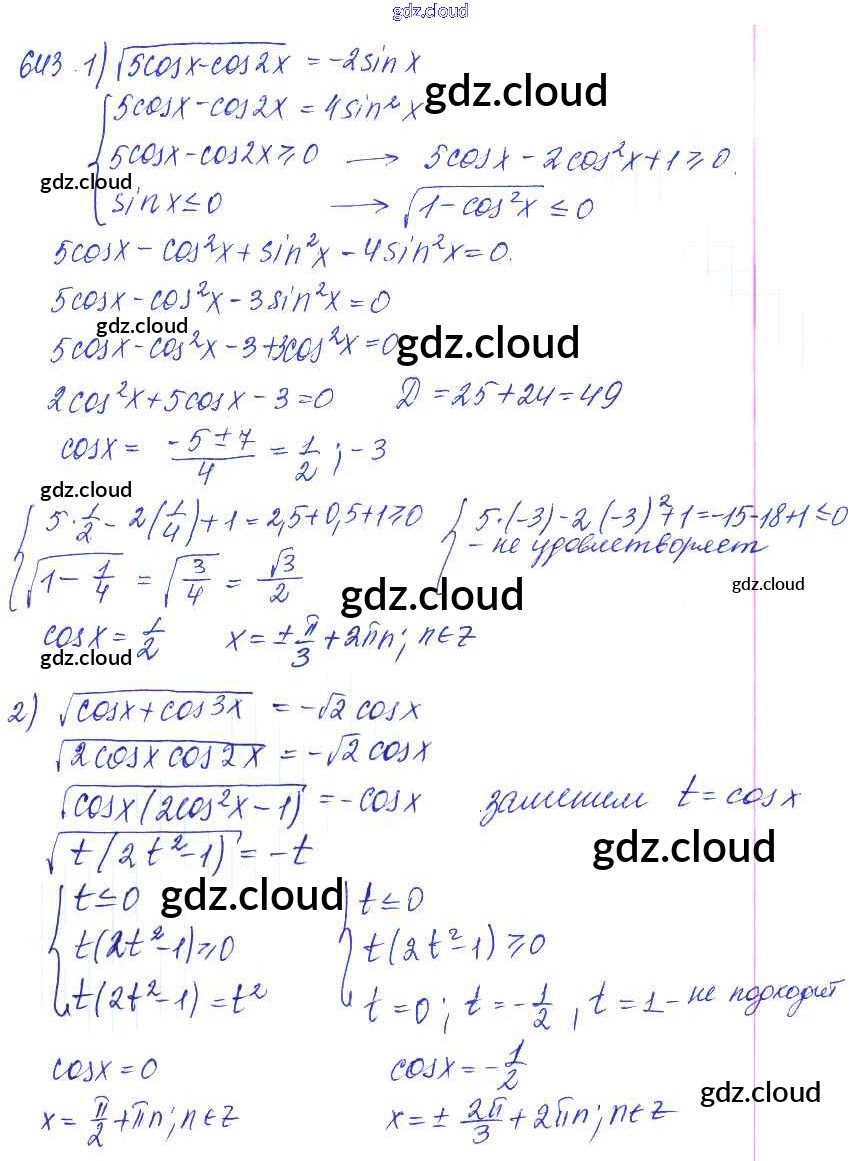 gdz.cloud
643. 1) √(5cosx-cos2x) = -2sinx
gdz.cloud
{5cosx-cos2x = 4sin²x
5cosx-cos2x≥0 → 5cosx-2cos²x+1≥0.
gdz.cloud
sinx≤0 → √(1-cos²x) ≤0
5cosx-cos²x+sin²x-4sin²x=0.
5cosx-cos²x-3sin²x=0
gdz.cloud
5cosx-cos²x-3+3cos²x=0
gdz.cloud
2cos²x+5cosx-3=0 D=25+24=49
cosx = (-5±7)/4 = 1/2; -3
gdz.cloud
{5·1/2-2(1/4)+1=2,5+0,5+1≥0 {5·(-3)-2(-3)²+1=-15-18+1≤0
- не удовлетворяет
√(1-1/4) = √(3/4) = √3/2
gdz.cloud
gdz.cloud
cosx=1/2 x=±π/3+2πn; n∈Z
gdz.cloud
2) √(cosx+cos3x) = -√2 cosx
√(2cosxcos2x) = -√2 cosx
√(cosx(2cos²x-1)) = -cosx заменим t=cosx
√(t(2t²-1)) = -t
gdz.cloud
{t≤0 {t≤0
gdz.cloud
t(2t²-1)≥0 t(2t²-1)≥0
t(2t²-1)=t² t=0; t=-1/2, t=1- не подходит
cosx=0 cosx=-1/2
gdz.cloud
x=π/2+πn; n∈Z x=±2π/3+2πn; n∈Z